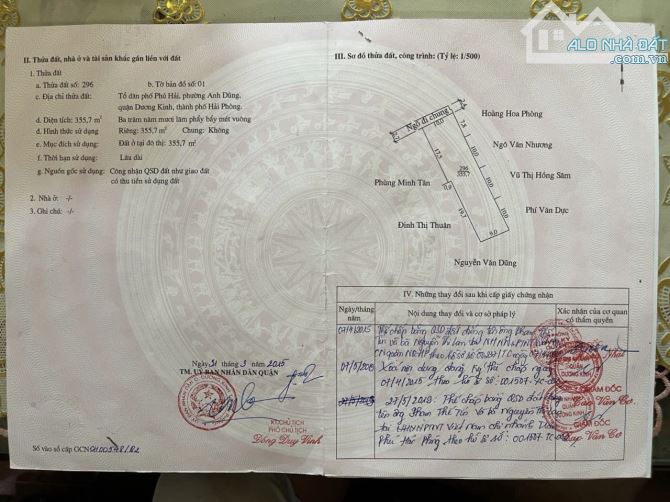 ALO NHÀ ĐẤT
II. Thửa đất, nhà ở và tài sản khác gắn liền với đất
1. Thửa đất
a. Thửa đất số: 296 b. Tờ bản đồ số: 01
c. Địa chỉ thửa đất: Tổ dân phố Phú Hải, phường Anh Dũng,
quận Dương Kinh, thành phố Hải Phòng.
d. Diện tích: 355,7 m² Ba trăm năm mươi lăm phẩy bẩy mét vuông
đ. Hình thức sử dụng Riêng: 355,7 m² Chung: Không
e. Mục đích sử dụng: Đất ở tại đô thị: 355,7 m²
f. Thời hạn sử dụng: Lâu dài
g. Nguồn gốc sử dụng: Công nhận QSD đất như giao đất
có thu tiền sử dụng đất
2. Nhà ở: -/-
3. Ghi chú: -/-
Ngày 31 tháng 3 2015
TM. UỶ BAN NHÂN DÂN QUẬN
KT. CHỦ TỊCH
PHÓ CHỦ TỊCH
Đồng Duy Vinh
Số vào sổ cấp GCN
III. Sơ đồ thửa đất, công trình: (Tỷ lệ: 1/500)
Ngõ đi chung
Hoàng Hoa Phòng
10,0
7,8
2,7
Ngô Văn Nhương
10,0
17,5
296
355,7
Vũ Thị Hồng Sâm
Phùng Minh Tân
0,9
10,0
Phí Văn Dực
Đinh Thị Thuân
19,7
10,0
9,0
Nguyễn Văn Dũng
IV. Những thay đổi sau khi cấp giấy chứng nhận
Ngày/tháng năm
Nội dung thay đổi và cơ sở pháp lý
Xác nhận của cơ quan có thẩm quyền
Thế chấp bằng QSD đất
và bà Nguyễn Thị Lan tại
Xoá nội dung đăng ký thế chấp ngày
07/4/2015 theo hồ sơ số:
27/5/2019 Thế chấp bằng QSD đất
ông Phạm Thế và bà Nguyễn Thị Lan
tại Việt Nam chi nhánh
Hải Phòng theo hồ sơ số: 001587
GIÁM ĐỐC
Cao Văn Cơ
GIÁM ĐỐC
Cao Văn Cơ